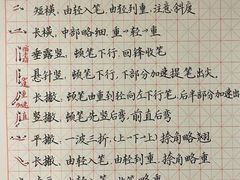 二 短横，由轻入笔，由轻到重，注意斜度
二 长横，中部略细，重→轻→重
垂露竖，顿笔下行，回锋收笔
悬针竖，顿笔下行，下部分加速提笔出尖
长撇，顿笔由重到轻向左下行笔，后半部分加速出
竖撇，顿笔先竖后弯，前直后弯
平捺，一波三折(上→下→上)捺角略翘
长捺，由轻入笔，由轻到重，捺角略重